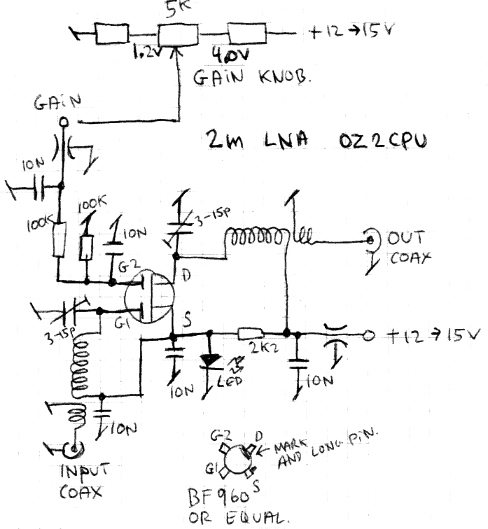 5K
1.2V
4.0V
+12→15V
GAIN KNOB.
GAIN
2m LNA OZ2CPU
10N
100K
100K
10N
3-15p
OUT
COAX
G2
D
3-15p
G1
S
2K2
+12→15V
10N
LED
10N
10N
INPUT
COAX
G-2
D
MARK
AND LONG PIN.
G1
S
BF960
OR EQUAL.